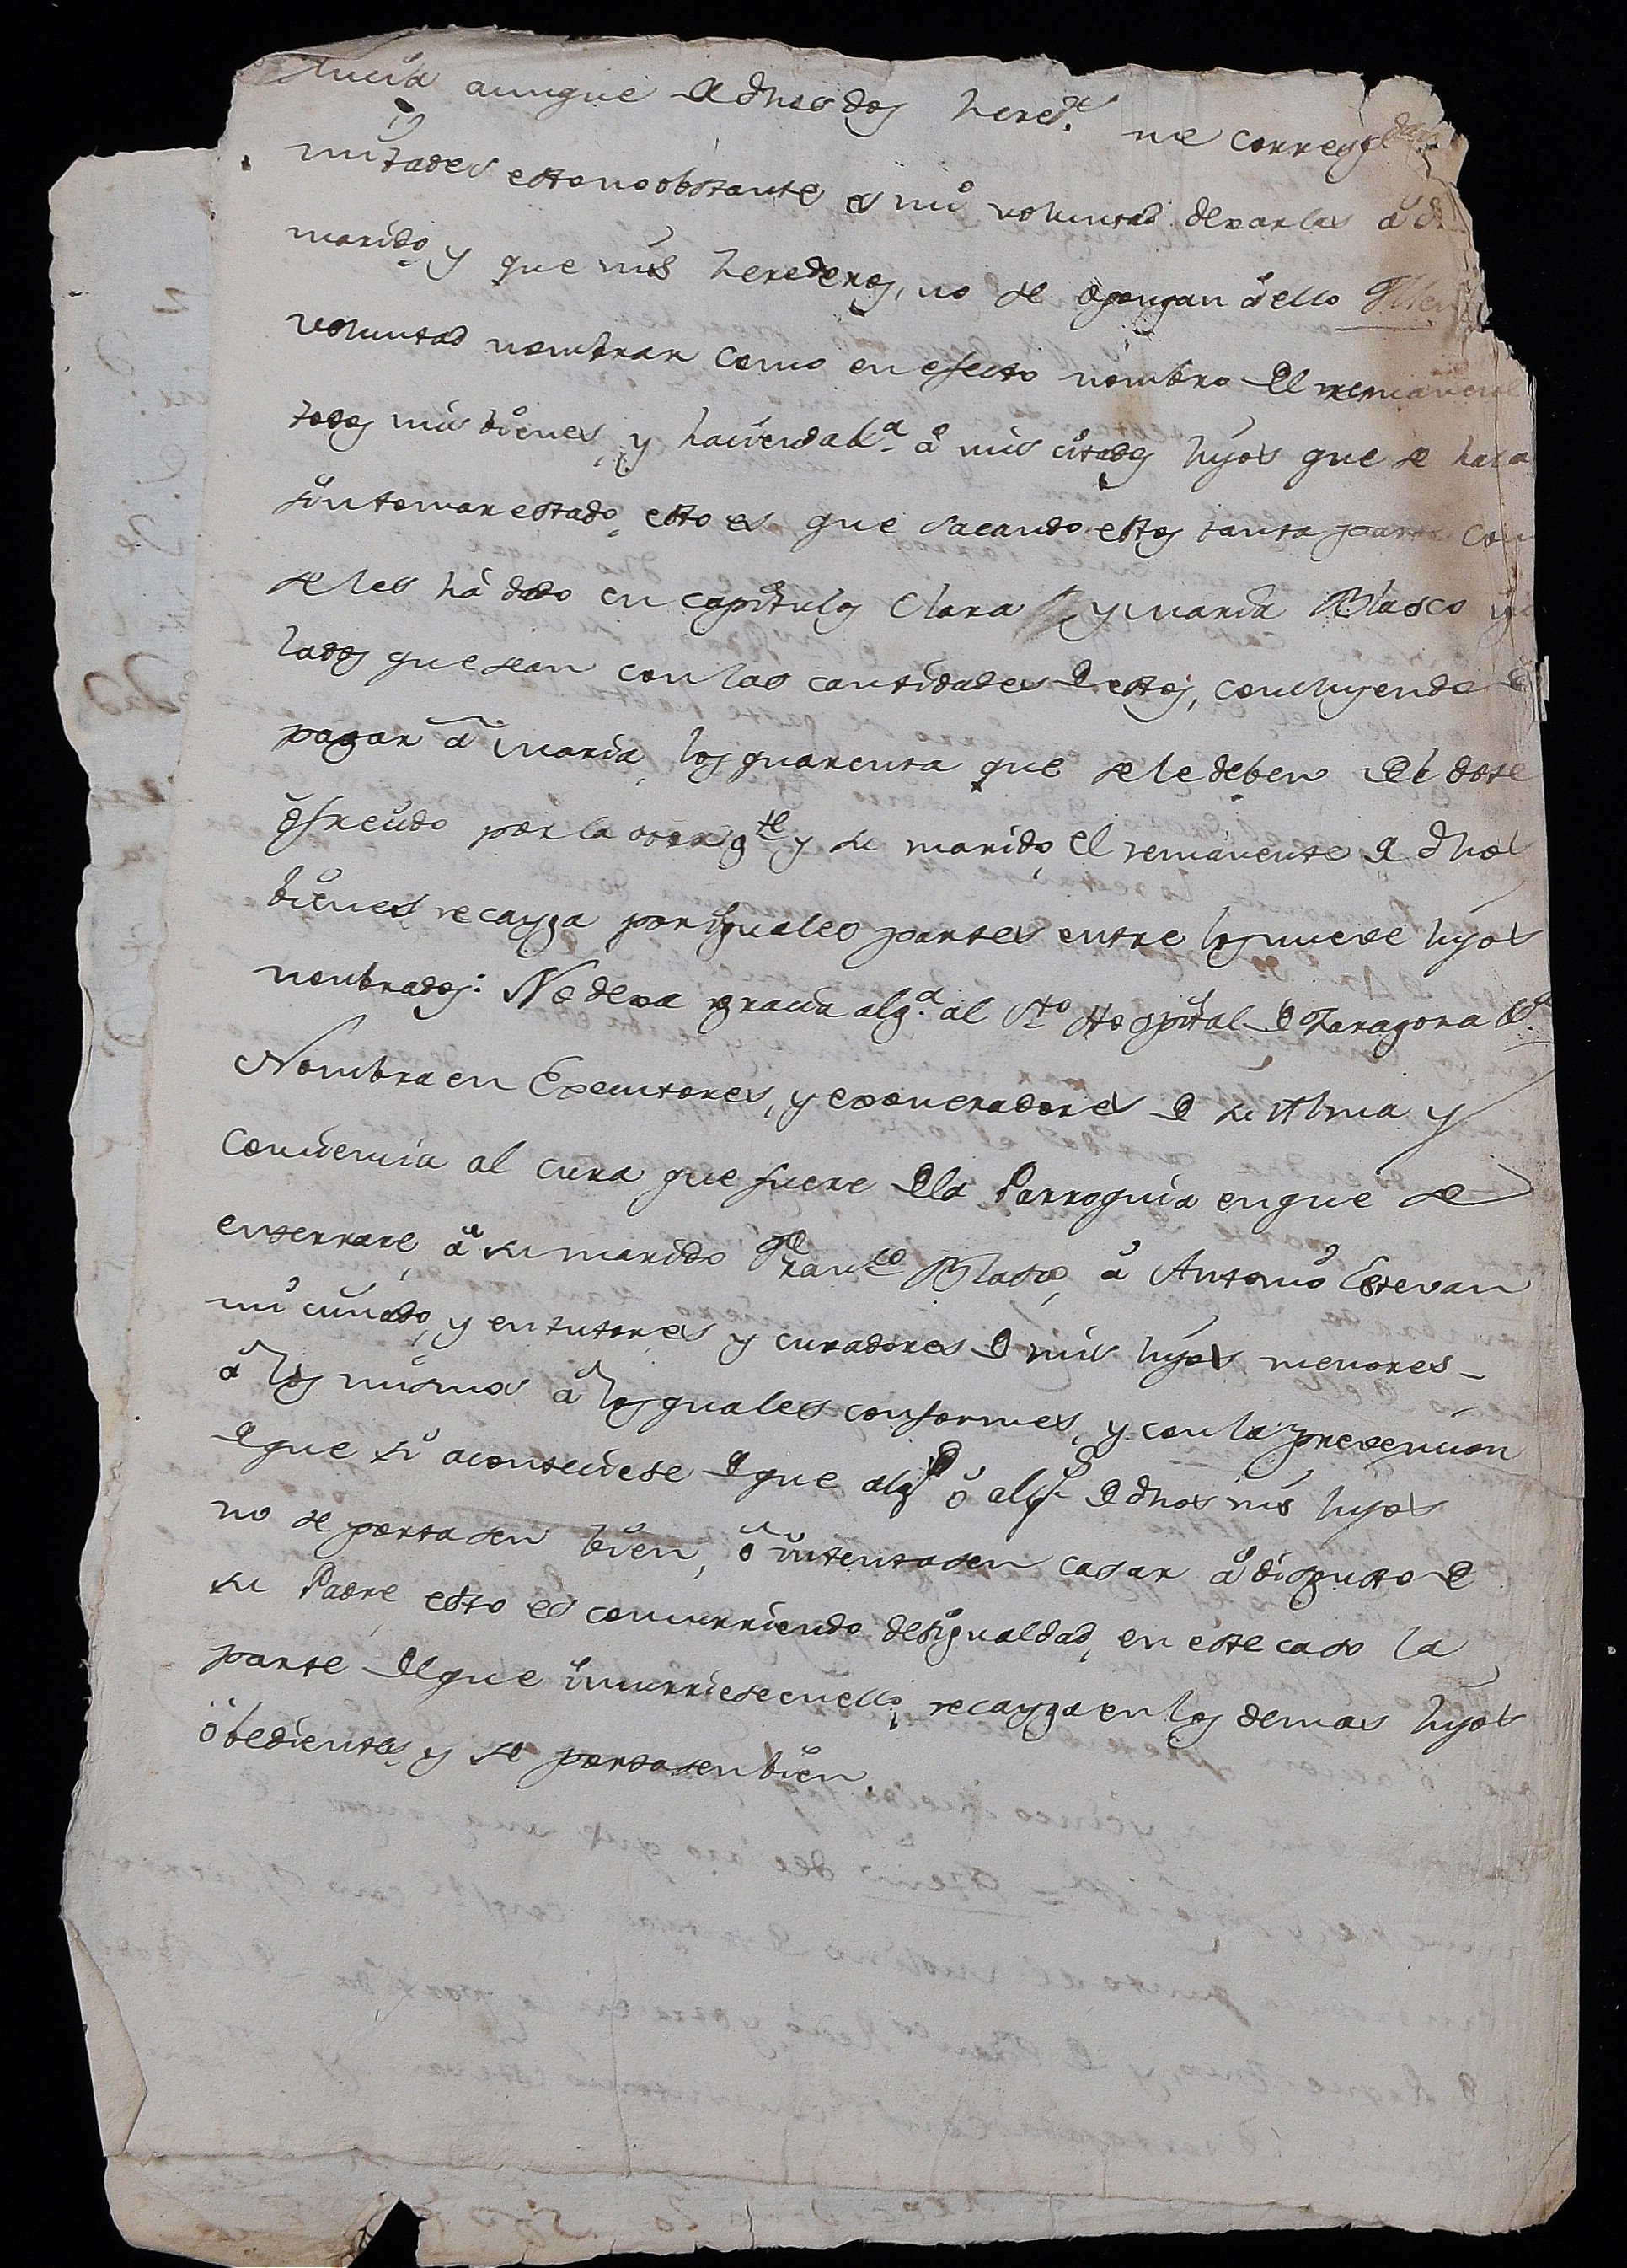 aunque de dhos dos hered.s me
mitades esto no obstante es mi voluntad dexarlas á d.
marido, y que mis herederos, no se opongan á ello Item
voluntad nombrar como en efecto nombro del
todos mis bienes, y haciendab.a á mis citados hijos que se
sin tomar estado, esto es que sacando estos tanta parte
se les há dado en capitulos Clara y maria Blasco
lados que sean con las cantidades de estos, concluyendo de
pagar á maria, los quarenta que se le deben del dote
ofrecido por la otorg.te y su marido, el remanente de dhos
bienes, recayga por iguales partes entre los nueve hijos
nombrados: No dexa gracia alg.a al S.to Hospital de Zaragoza
Nombra en Executores, y exoneradores de su Alma y
conciencia al cura que fuere dela Parroquia en que se
enterrare, á su marido Fran.co Blasco, á Antonio Estevan
mi cuñado, y en tutores y curadores de mis hijos menores-
á los mismos á los quales conformes, y con la prevencion
de que si aconteciese de que alg.o ó alg.s de dhos mis hijos
no se portasen bien, ó intentasen casar á disgusto de
su Padre esto es concurriendo desigualdad, en este caso la
parte del que incurriese en ello, recayga en los demas hijos
obedientes, y se portasen bien.